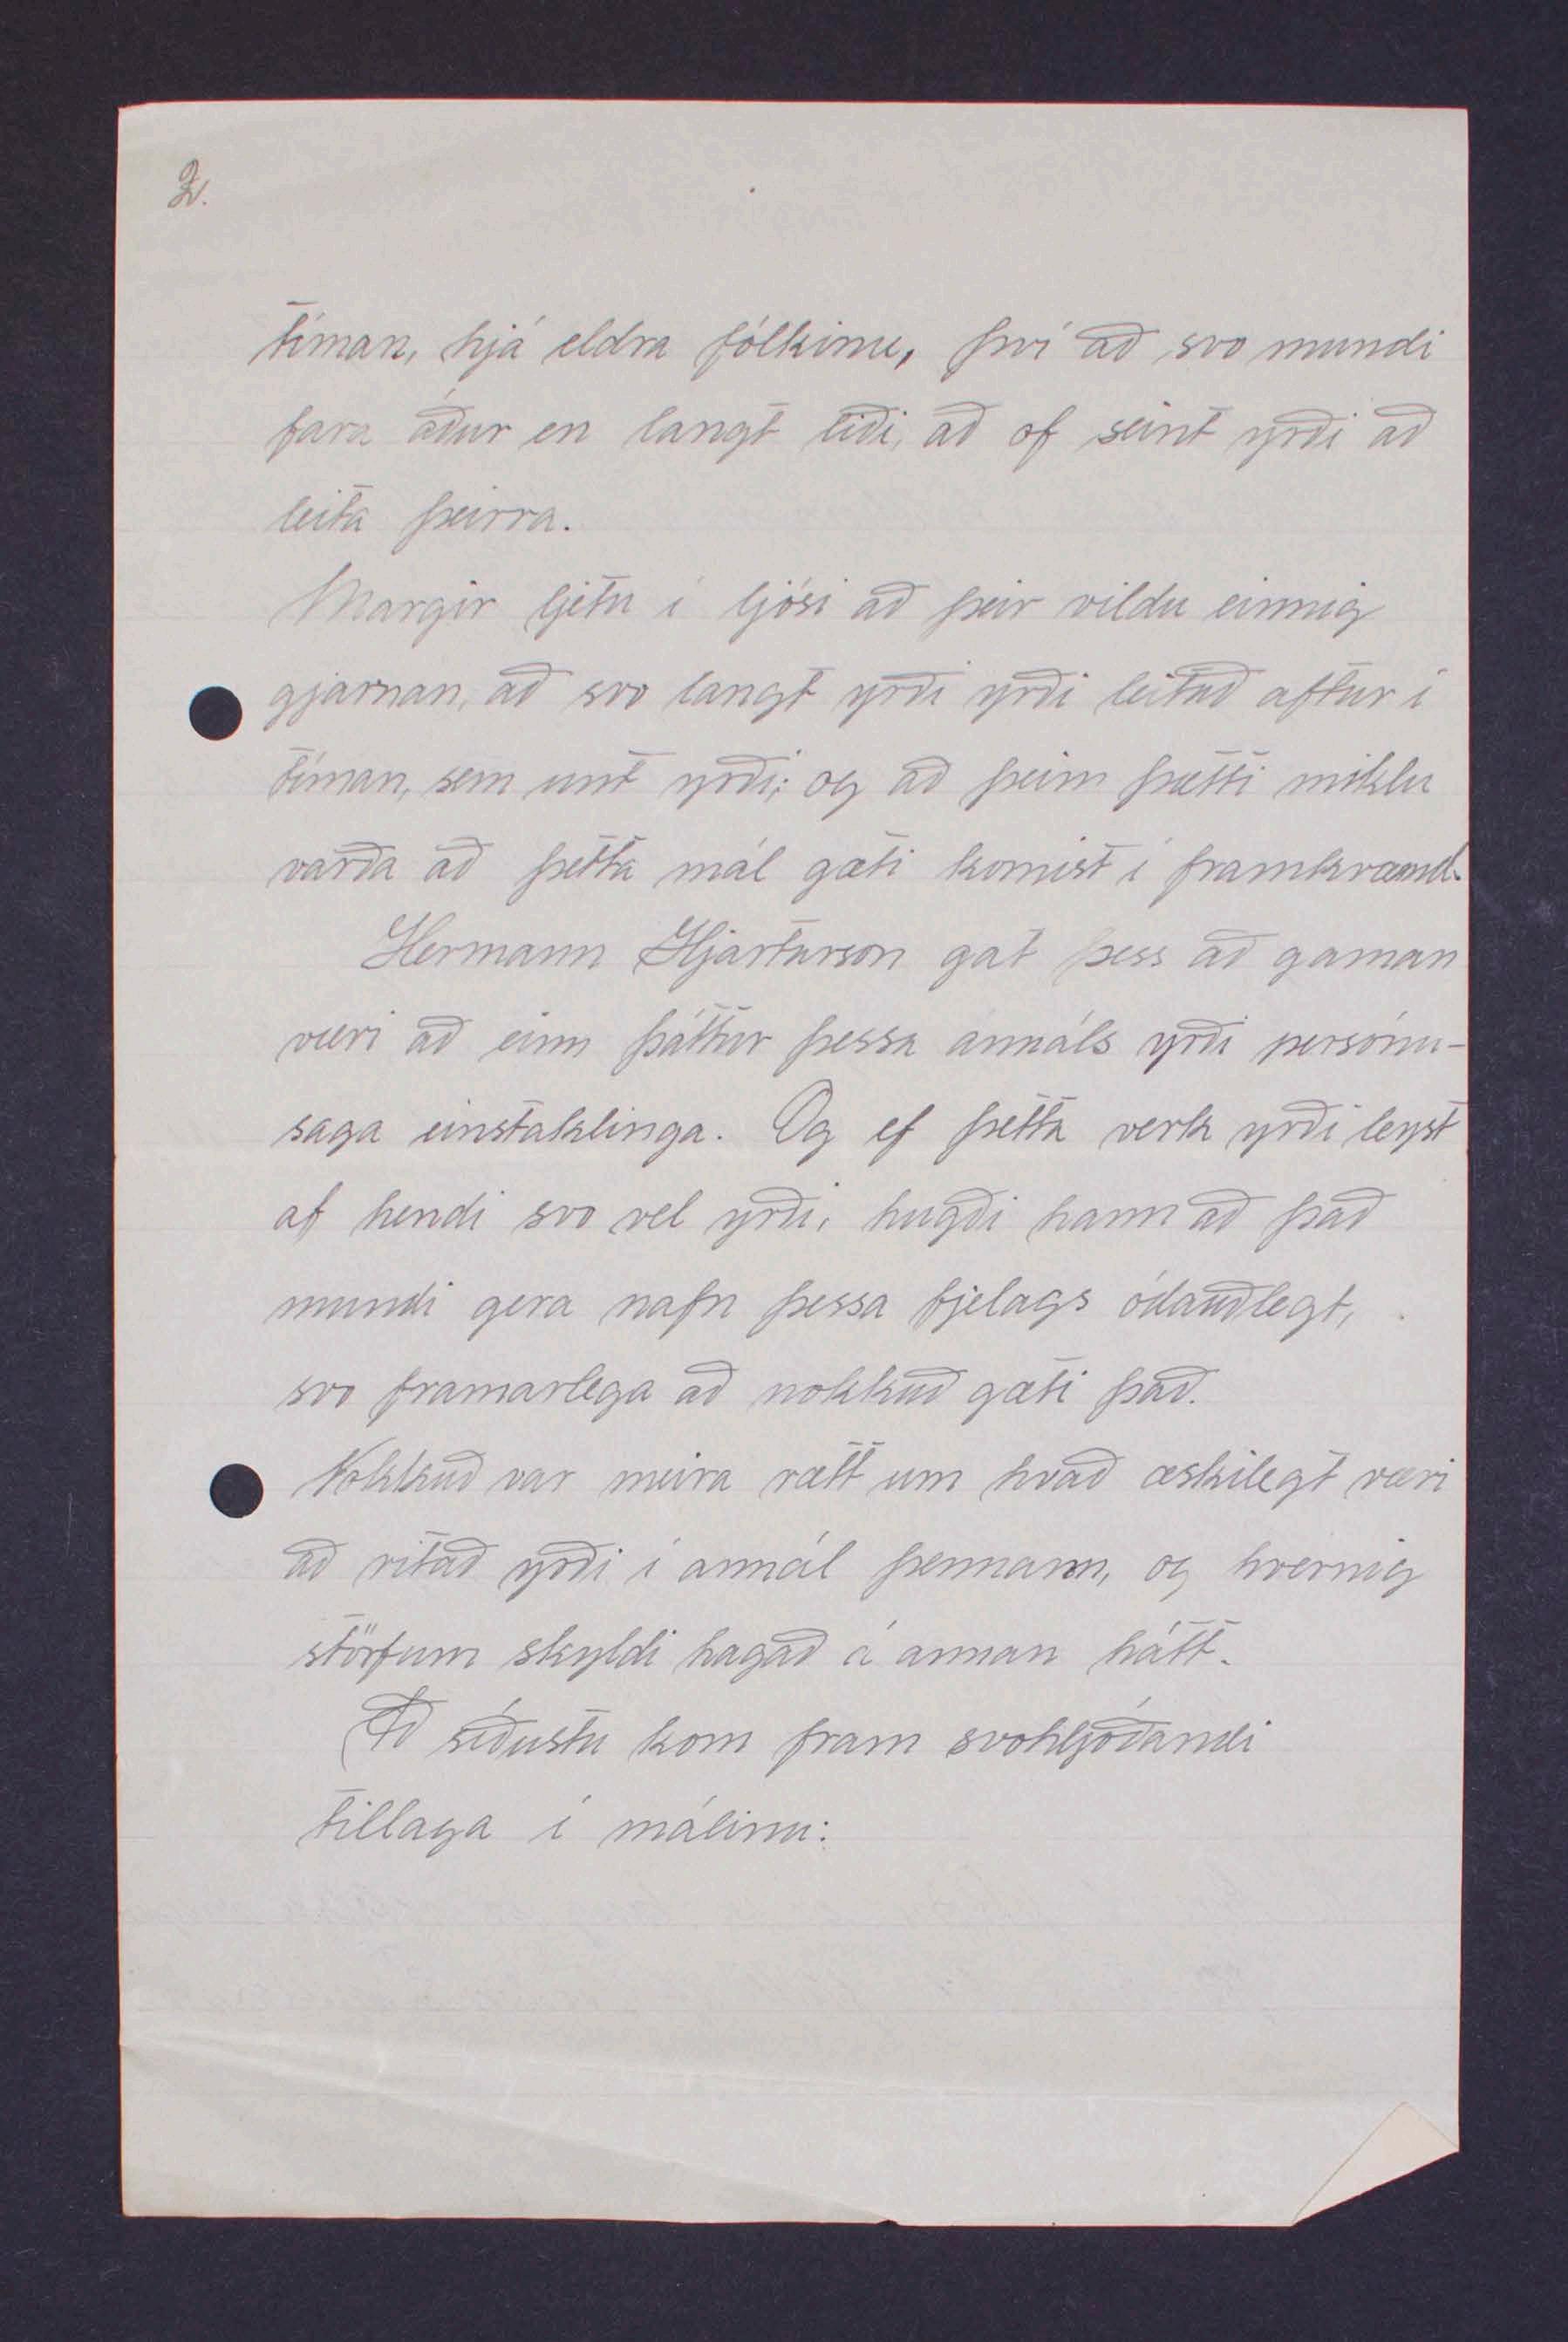 2.
tíman, hjá eldra fólkinu, því að svo mundi
fara áður en langt liði, að of seint yrði að
leita þeirra.
Margir ljetu í ljósi að þeir vildu einnig
gjarnan, að svo langt yrði yrði leitað aftur í
tíman, sem unt yrði; og að þeim þætti miklu
varða að þetta mál gæti komist í framkvæmd.
Hermann Hjartarson gat þess að gaman
væri að einn þáttur þessa annáls yrði persónu-
saga einstaklinga. Og ef þetta verk yrði leyst
af hendi svo vel yrði, hugði hann að það
mundi gera nafn þessa fjelags ódauðlegt,
svo framarlega að nokkuð gæti það.
Nokkuð var meira rætt um hvað æskilegt væri
að ritað yrði í annál þennann, og hvernig
störfum skyldi hagað á annan hátt.
Að síðustu kom fram svohljóðandi
tillaga í málinu: